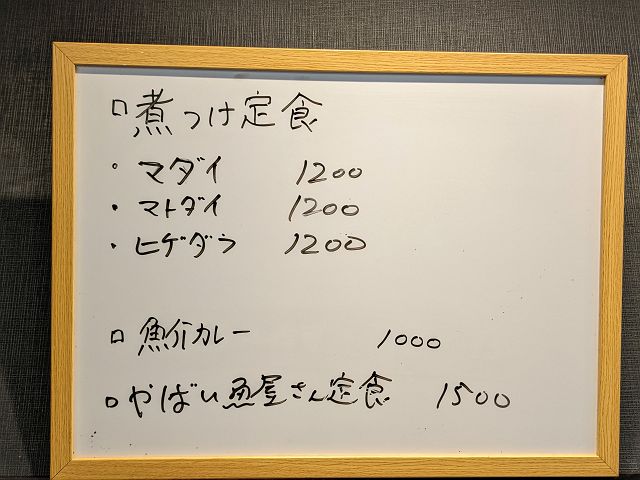 □煮つけ定食
・マダイ 1200
・マトダイ 1200
・ヒゲダラ 1200
□魚介カレー 1000
□やばい魚屋さん定食 1500